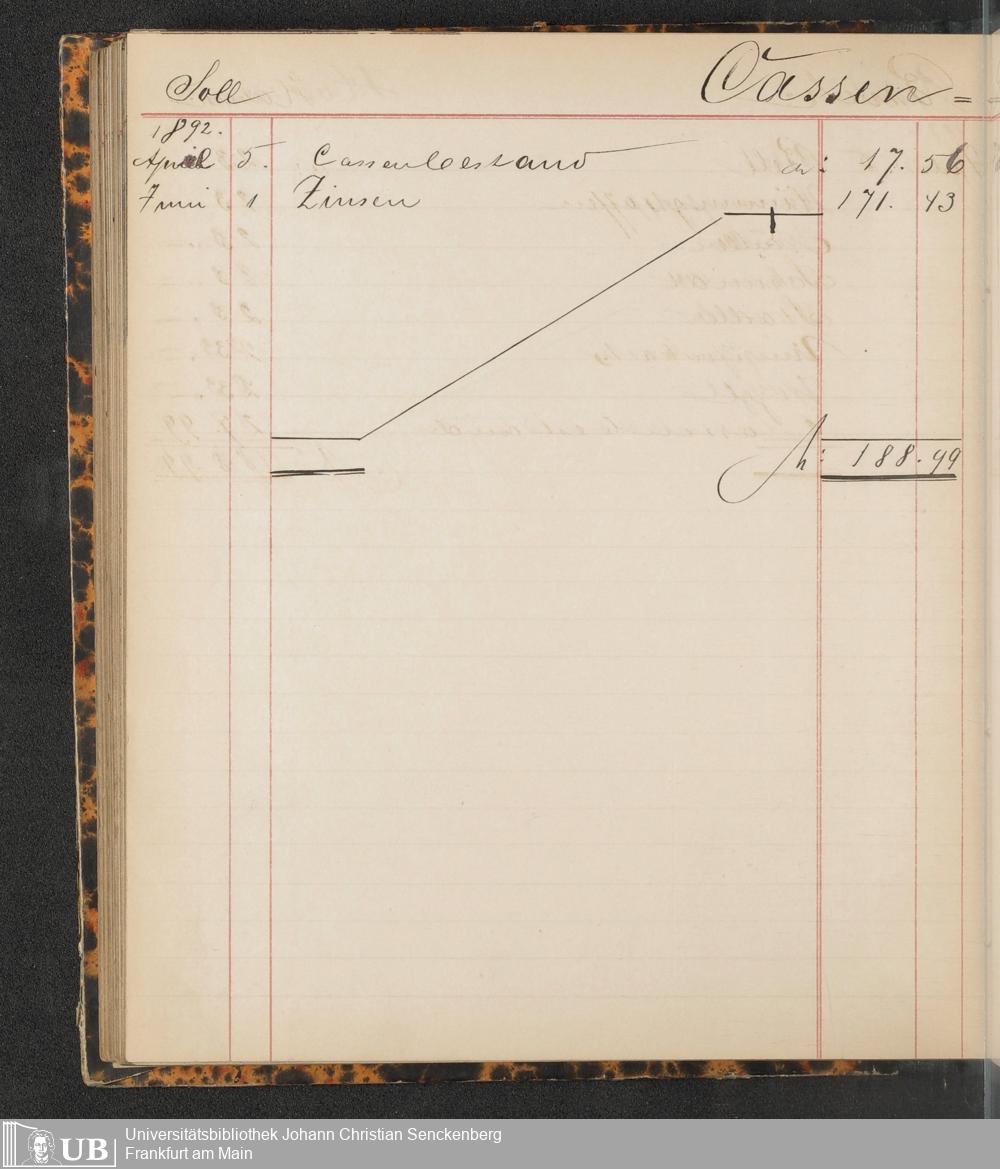 Soll Cassen =
1892.
April 5. Cassenbestand M: 17. 56
Juni 1 Zinsen 171. 43
M: 188. 99
UB Universitätsbibliothek Johann Christian Senckenberg
Frankfurt am Main